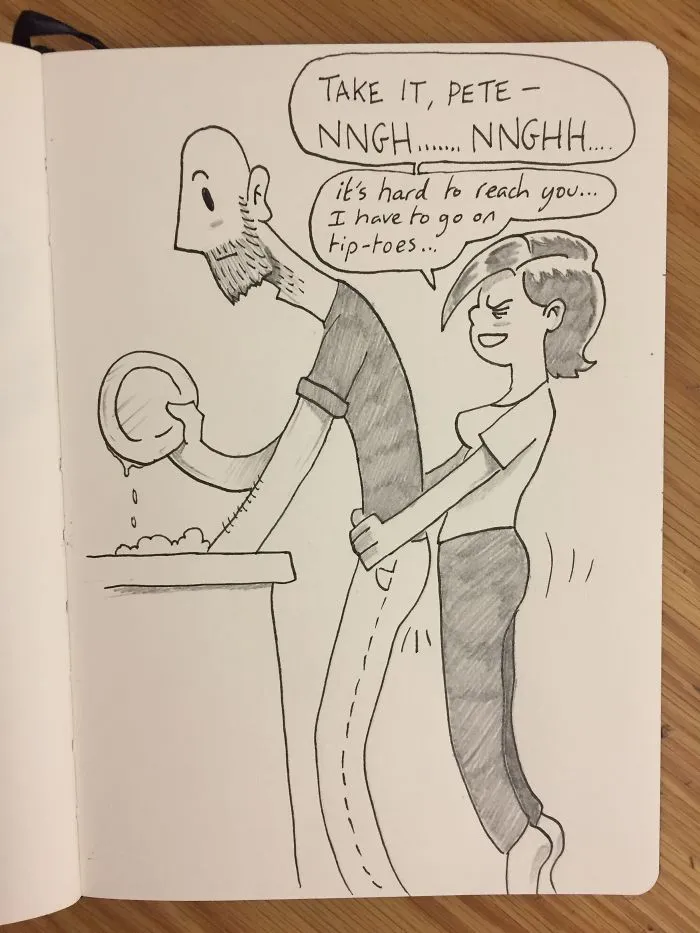 TAKE IT, PETE –
NNGH....... NNGHH....
it's hard to reach you...
I have to go on
tip-toes...